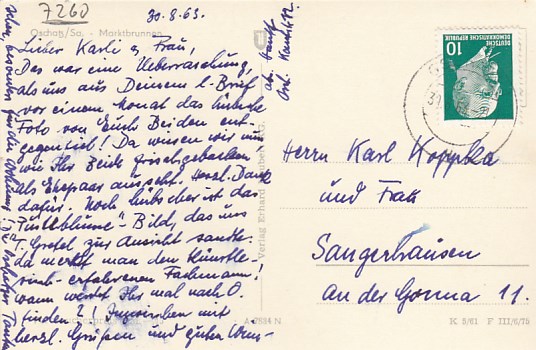 7260
30.8.63.
Oschatz/Sa. - Marktbrunnen
Lieber Karli u. Frau,
Das war eine Ueberraschung,
als uns aus Deinem l. Brief
vor einem Monat das hübsche
Foto von Euch Beiden ent-
gegenfiel! Da wissen wir nun
wie Ihr Beide frischgebacken
als Ehepaar ausseht. Herzl. Dank
dafür. Noch hübscher ist das
"Pusteblume"-Bild, das uns
T. Gretel zur Ansicht sandte.
da merkt man den Künstler
und erfahrenen Fachmann!
wann werdet Ihr mal nach O.
finden?! Inzwischen mit
herzl. Grüßen und guten Wün-
schen, besonders für die
Verlag Erhard Neubert
A 7834 N
DEUTSCHE
DEMOKRATISCHE REPUBLIK
10
Herrn Karl Koppka
und Frau
Sangerhausen
an der Gonna 11.
K 5/61 F III/6/75